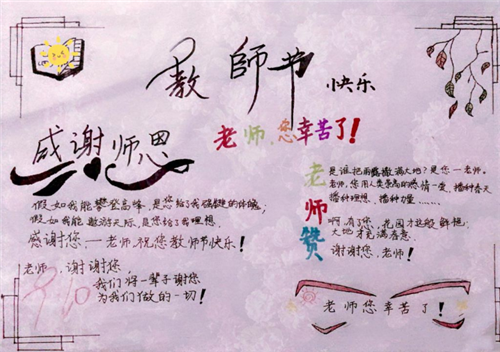 教師节
快乐
感谢师恩
老师,您辛苦了!
假如我能攀登高峰,是您给了我强健的体魄,
假如我能遨游天际,是您给了我理想.
感谢您一老师,祝您教师节快乐!
老师,谢谢您,
我们将一辈子谢您
为我们做的一切!
9.10
老师赞
是谁把雨露撒满大地?是您一老师.
老师,您用人类崇高的热情一爱,播种春天
播种理想、播种力量……
啊,有了您,花园才这般鲜艳,
大地才充满春意.
谢谢您,老师!
老师您辛苦了!